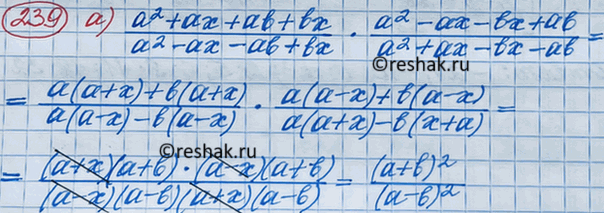 239 а) (a² + ax + ab + bx)/(a² - ax - ab + bx) · (a² - ax - bx + ab)/(a² + ax - bx - ab) =
©reshak.ru
= (a(a+x) + b(a+x))/(a(a-x) - b(a-x)) · (a(a-x) + b(a-x))/(a(a+x) - b(x+a)) =
©reshak.ru
= ((a+x)(a+b) · (a-x)(a+b))/((a-x)(a-b)(a+x)(a-b)) = (a+b)²/(a-b)²